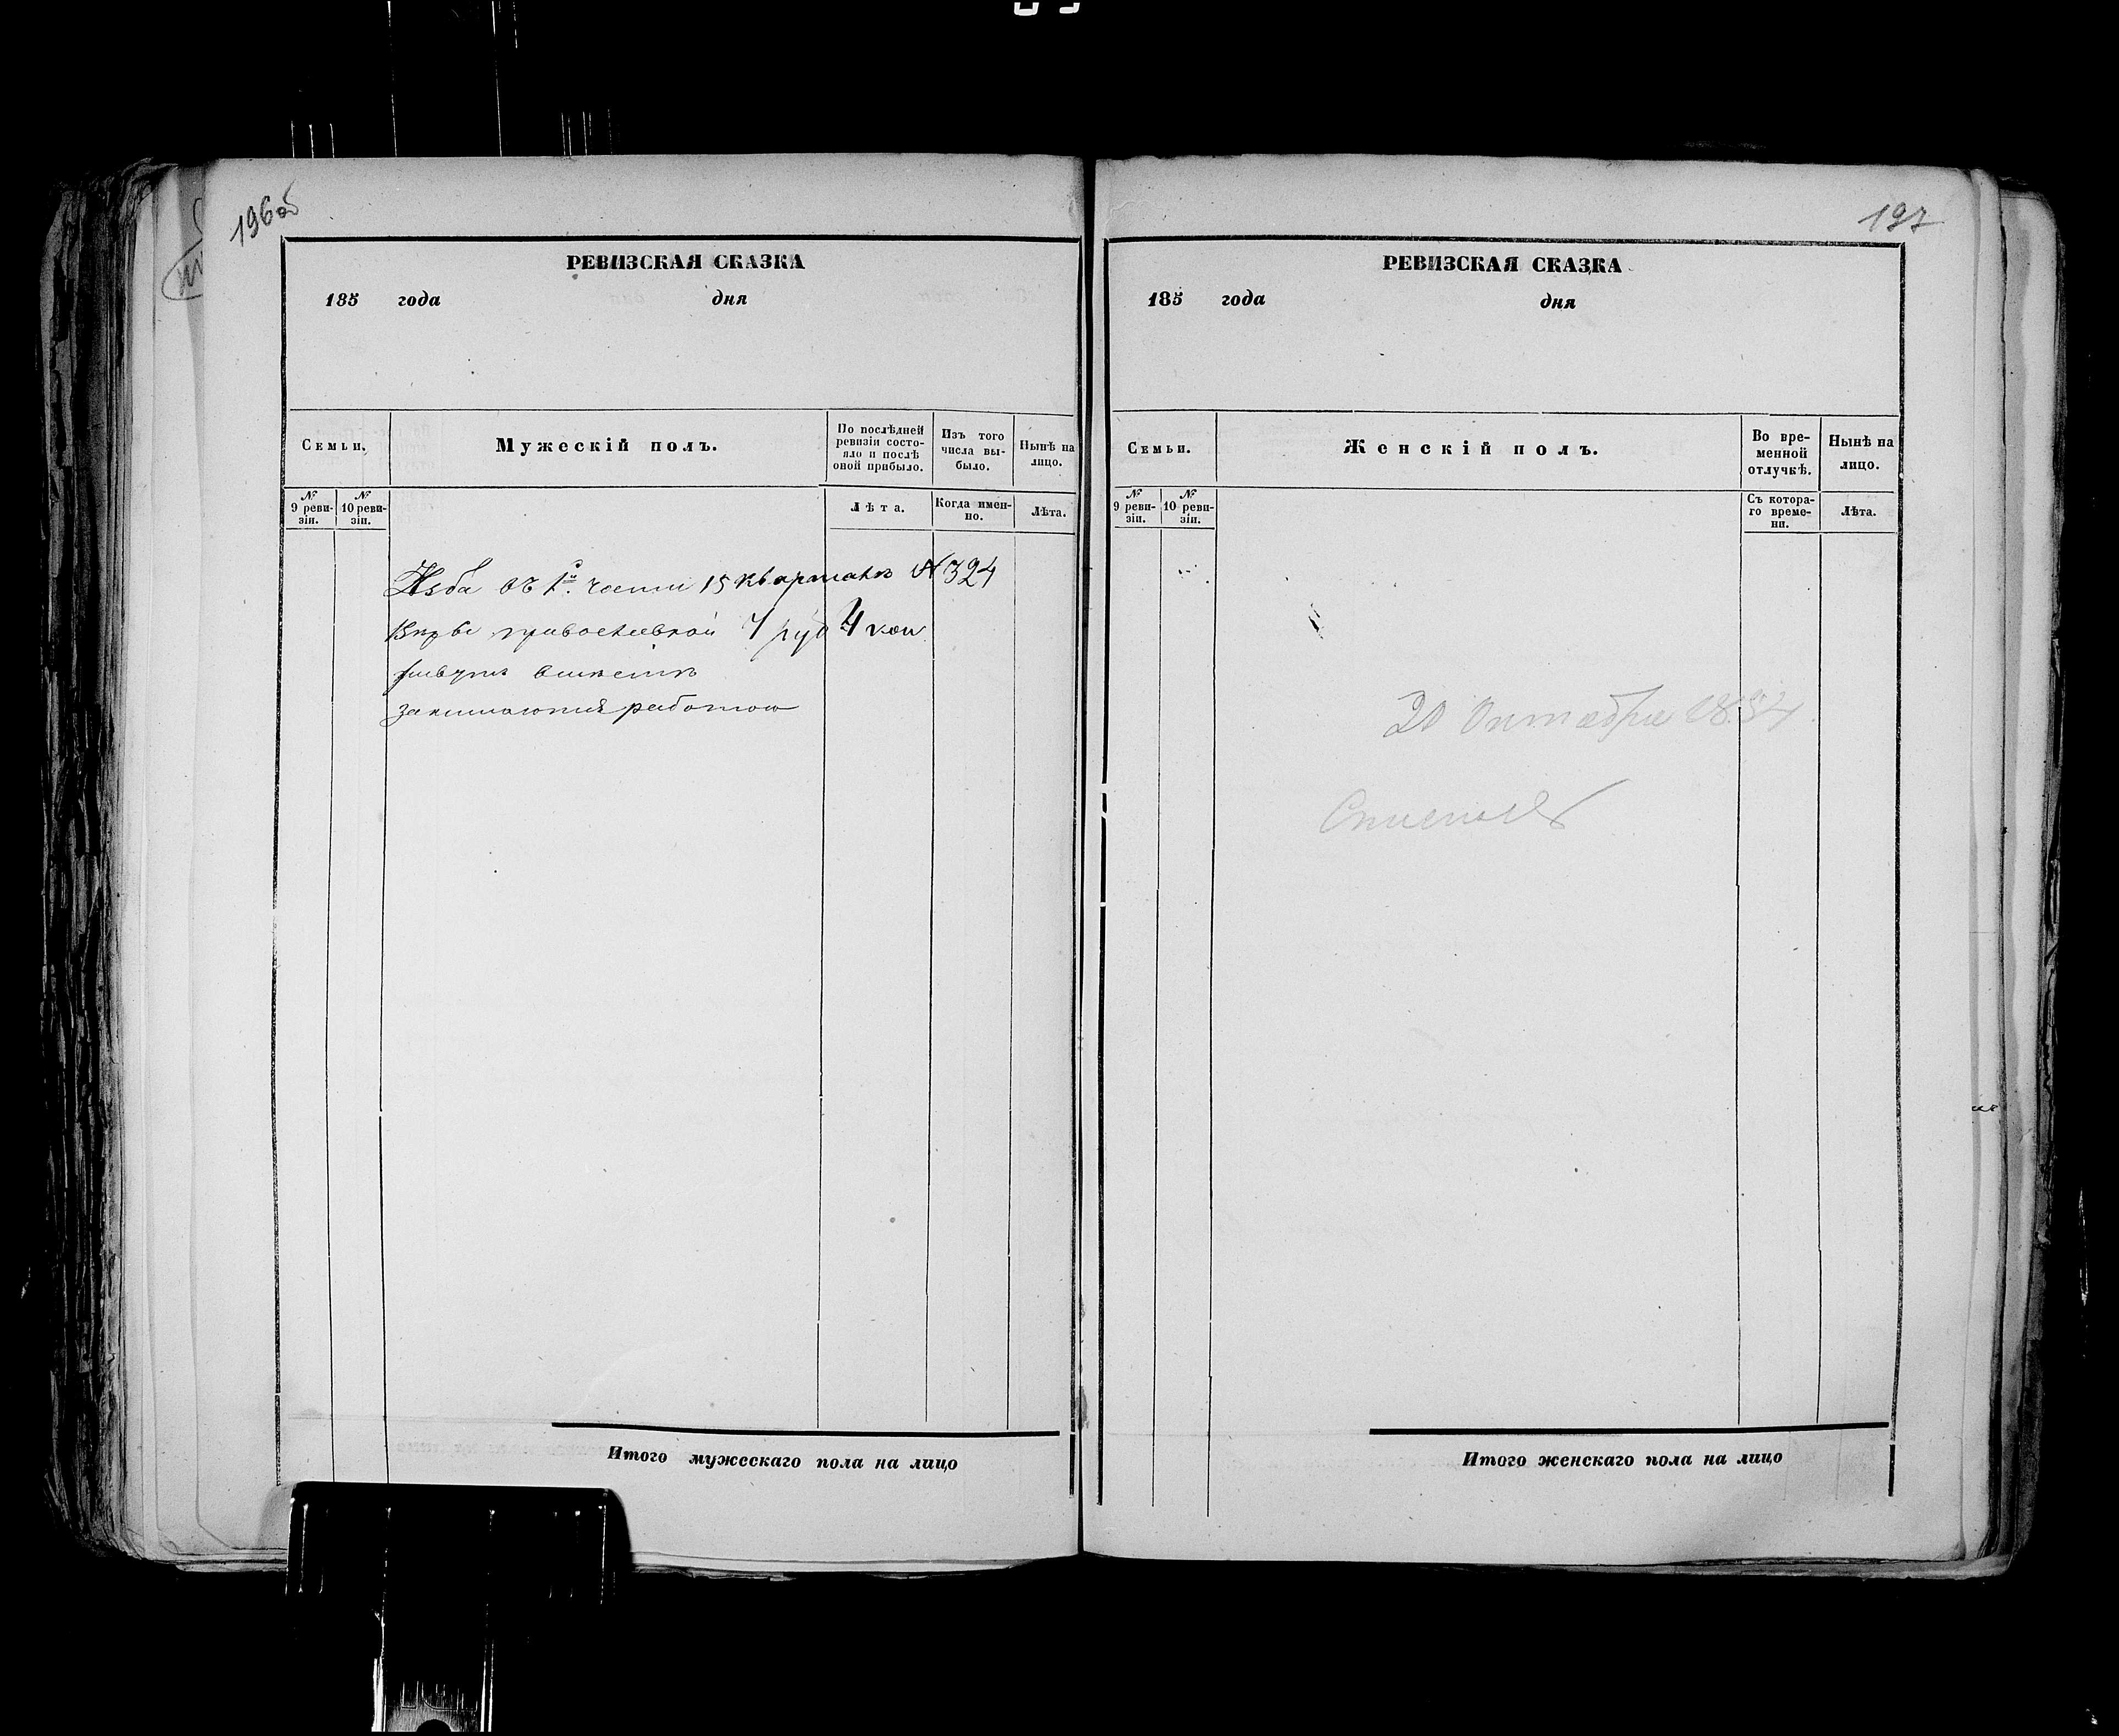 196 об
РЕВИЗСКАЯ СКАЗКА
185 года дня
Семьи.
Мужескій полъ.
По послѣдней ревизіи состояло и послѣ оной прибыло.
Изъ того числа выбыло.
Нынѣ на лицо.
№ 9 ревизіи.
№ 10 ревизіи.
Лѣта.
Когда именно.
Лѣта.
Изба въ 1й части 15 квартала № 324
руб 4 коп
занимаются работою
Итого мужескаго пола на лицо
197
РЕВИЗСКАЯ СКАЗКА
185 года дня
Семьи.
Женскій полъ.
Во временной отлучкѣ.
Нынѣ на лицо.
№ 9 ревизіи.
№ 10 ревизіи.
Съ котораго времени.
Лѣта.
20 Октября 1884
Итого женскаго пола на лицо